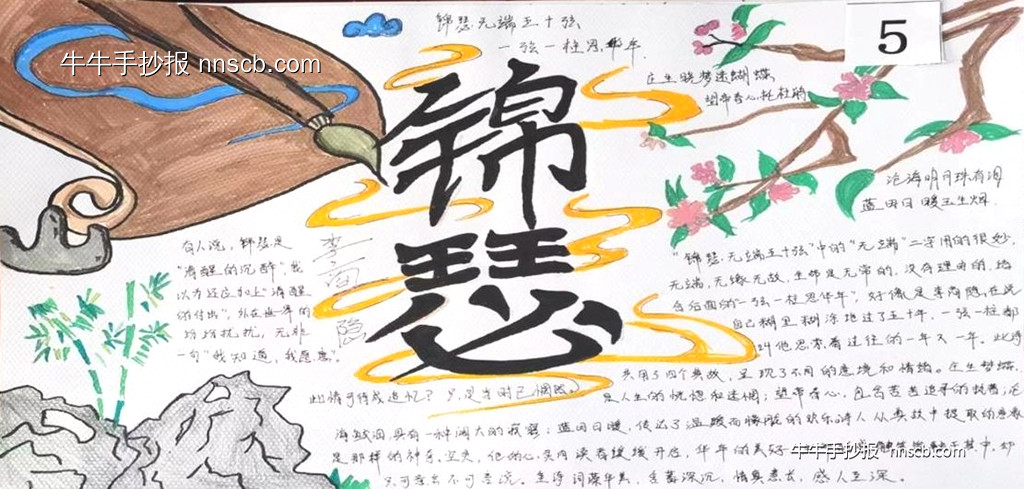 牛牛手抄报 nnscb.com
5
锦瑟无端五十弦
一弦一柱思华年
庄生晓梦迷蝴蝶
望帝春心托杜鹃
沧海明月珠有泪
蓝田日暖玉生烟
锦瑟
李商隐
有人说,锦瑟是
"清醒的沉醉"我
以为还应加上"清醒
的付出",外在世界的
纷纷扰扰,无非
一句"我知道,我愿意"。
此情可待成追忆?只是当时已惘然。
"锦瑟无端五十弦"中的"无端"二字用的很妙,
无端,无缘无故,生命是无常的,没有理由的,结
合后面的"一弦一柱思华年",好像是李商隐在说
自己糊里糊涂地过了五十年,一弦一柱都
叫他思索着过往的一年又一年。此诗
共用了四个典故,呈现了不同的意境和情绪。庄生梦蝶,
是人生的恍惚和迷惘;望帝春心,包含苦苦追寻的执着;沧
海鲛泪,具有一种阔大的寂寥;蓝田日暖,传达了温暖而朦胧的欢乐。诗人从典故中提取的意象
是那样的神奇、空灵,他的心灵向读者缓缓开启,华年的美好
于其中,却
只可意会不可言说。全诗词藻华美,含蓄深沉,情真意长,感人至深。
牛牛手抄报 nnscb.com